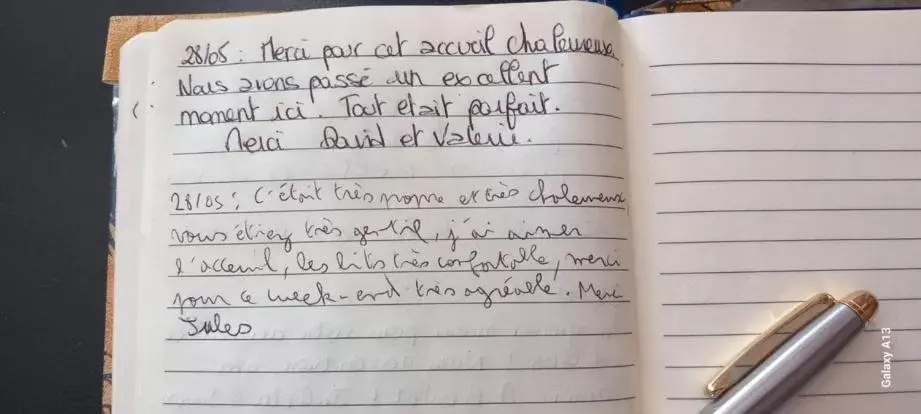 28/05 : Merci pour cet accueil chaleureux.
Nous avons passé un excellent
moment ici. Tout etait parfait.
Merci David et Valerie.
28/05 : C'était très propre et très chaleureux
vous étiez très gentil, j'ai aimer
l'acceuil, les lits très confortable, merci
pour ce week-end très agréable. Merci
Jules
Galaxy A13